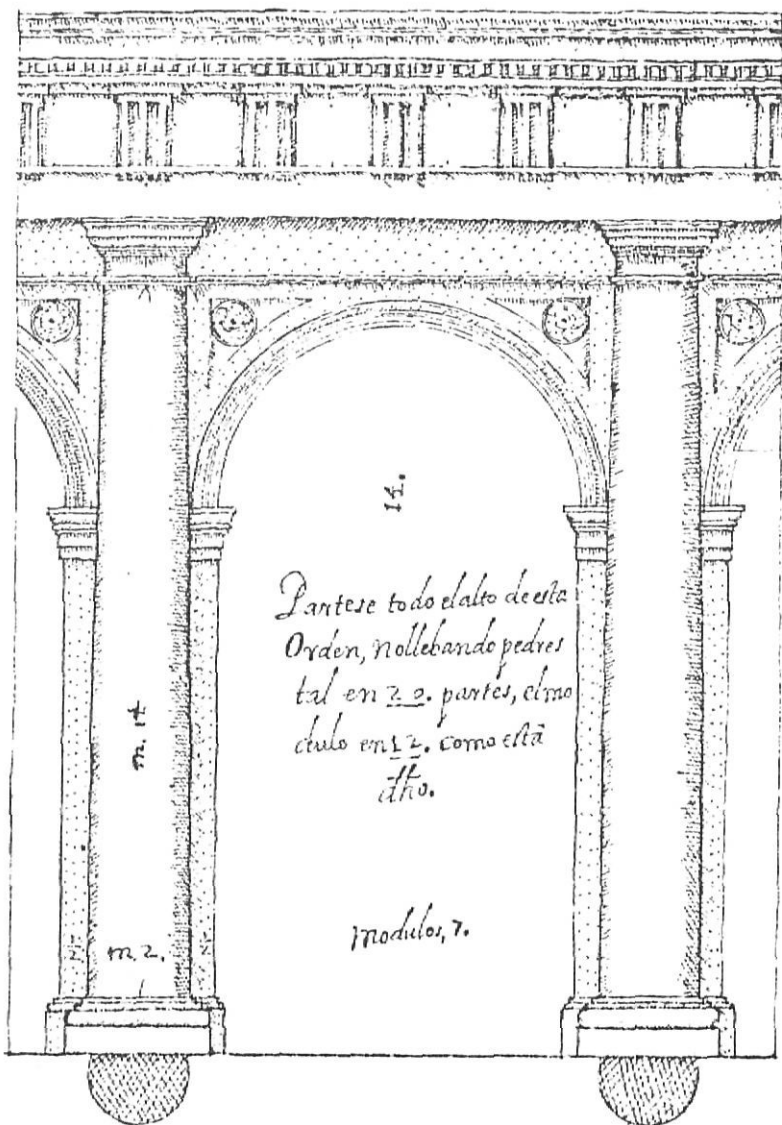 14.
Partese todo el alto de esta
Orden, no llebando pedres
tal en 20. partes, el mo
dulo en 12. como està
dho.
m. 14
m. 2.
modulos, 7.